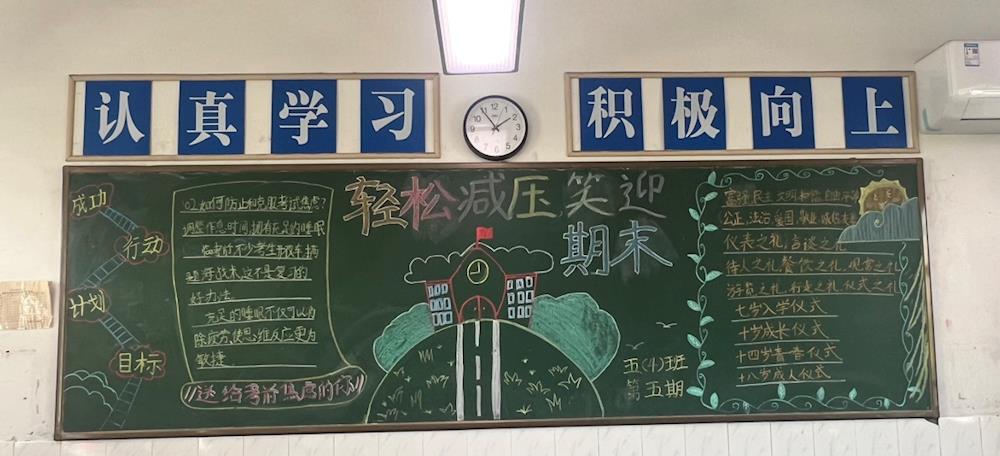 认真学习
积极向上
轻松减压笑迎
期末
成功
行动
计划
目标
02.如何防止和克服考试焦虑?
调整作息时间,拥有充足的睡眠
临考前,不少考生
海战术,这不是复习的
好办法
充足的睡眠不仅可以消
除疲劳,使思维反应更为
敏捷
送给考前焦虑的你
富强 民主 文明 和谐 自由 平
公正,法治 爱国,敬业 诚信 友善
仪表之礼,言谈之礼
待人之礼,餐饮之礼,观赏之礼
游览之礼,行走之礼 仪式之礼
七岁入学仪式
十岁成长仪式
十四岁青春仪式
十八岁成人仪式
五(4)班
第五期